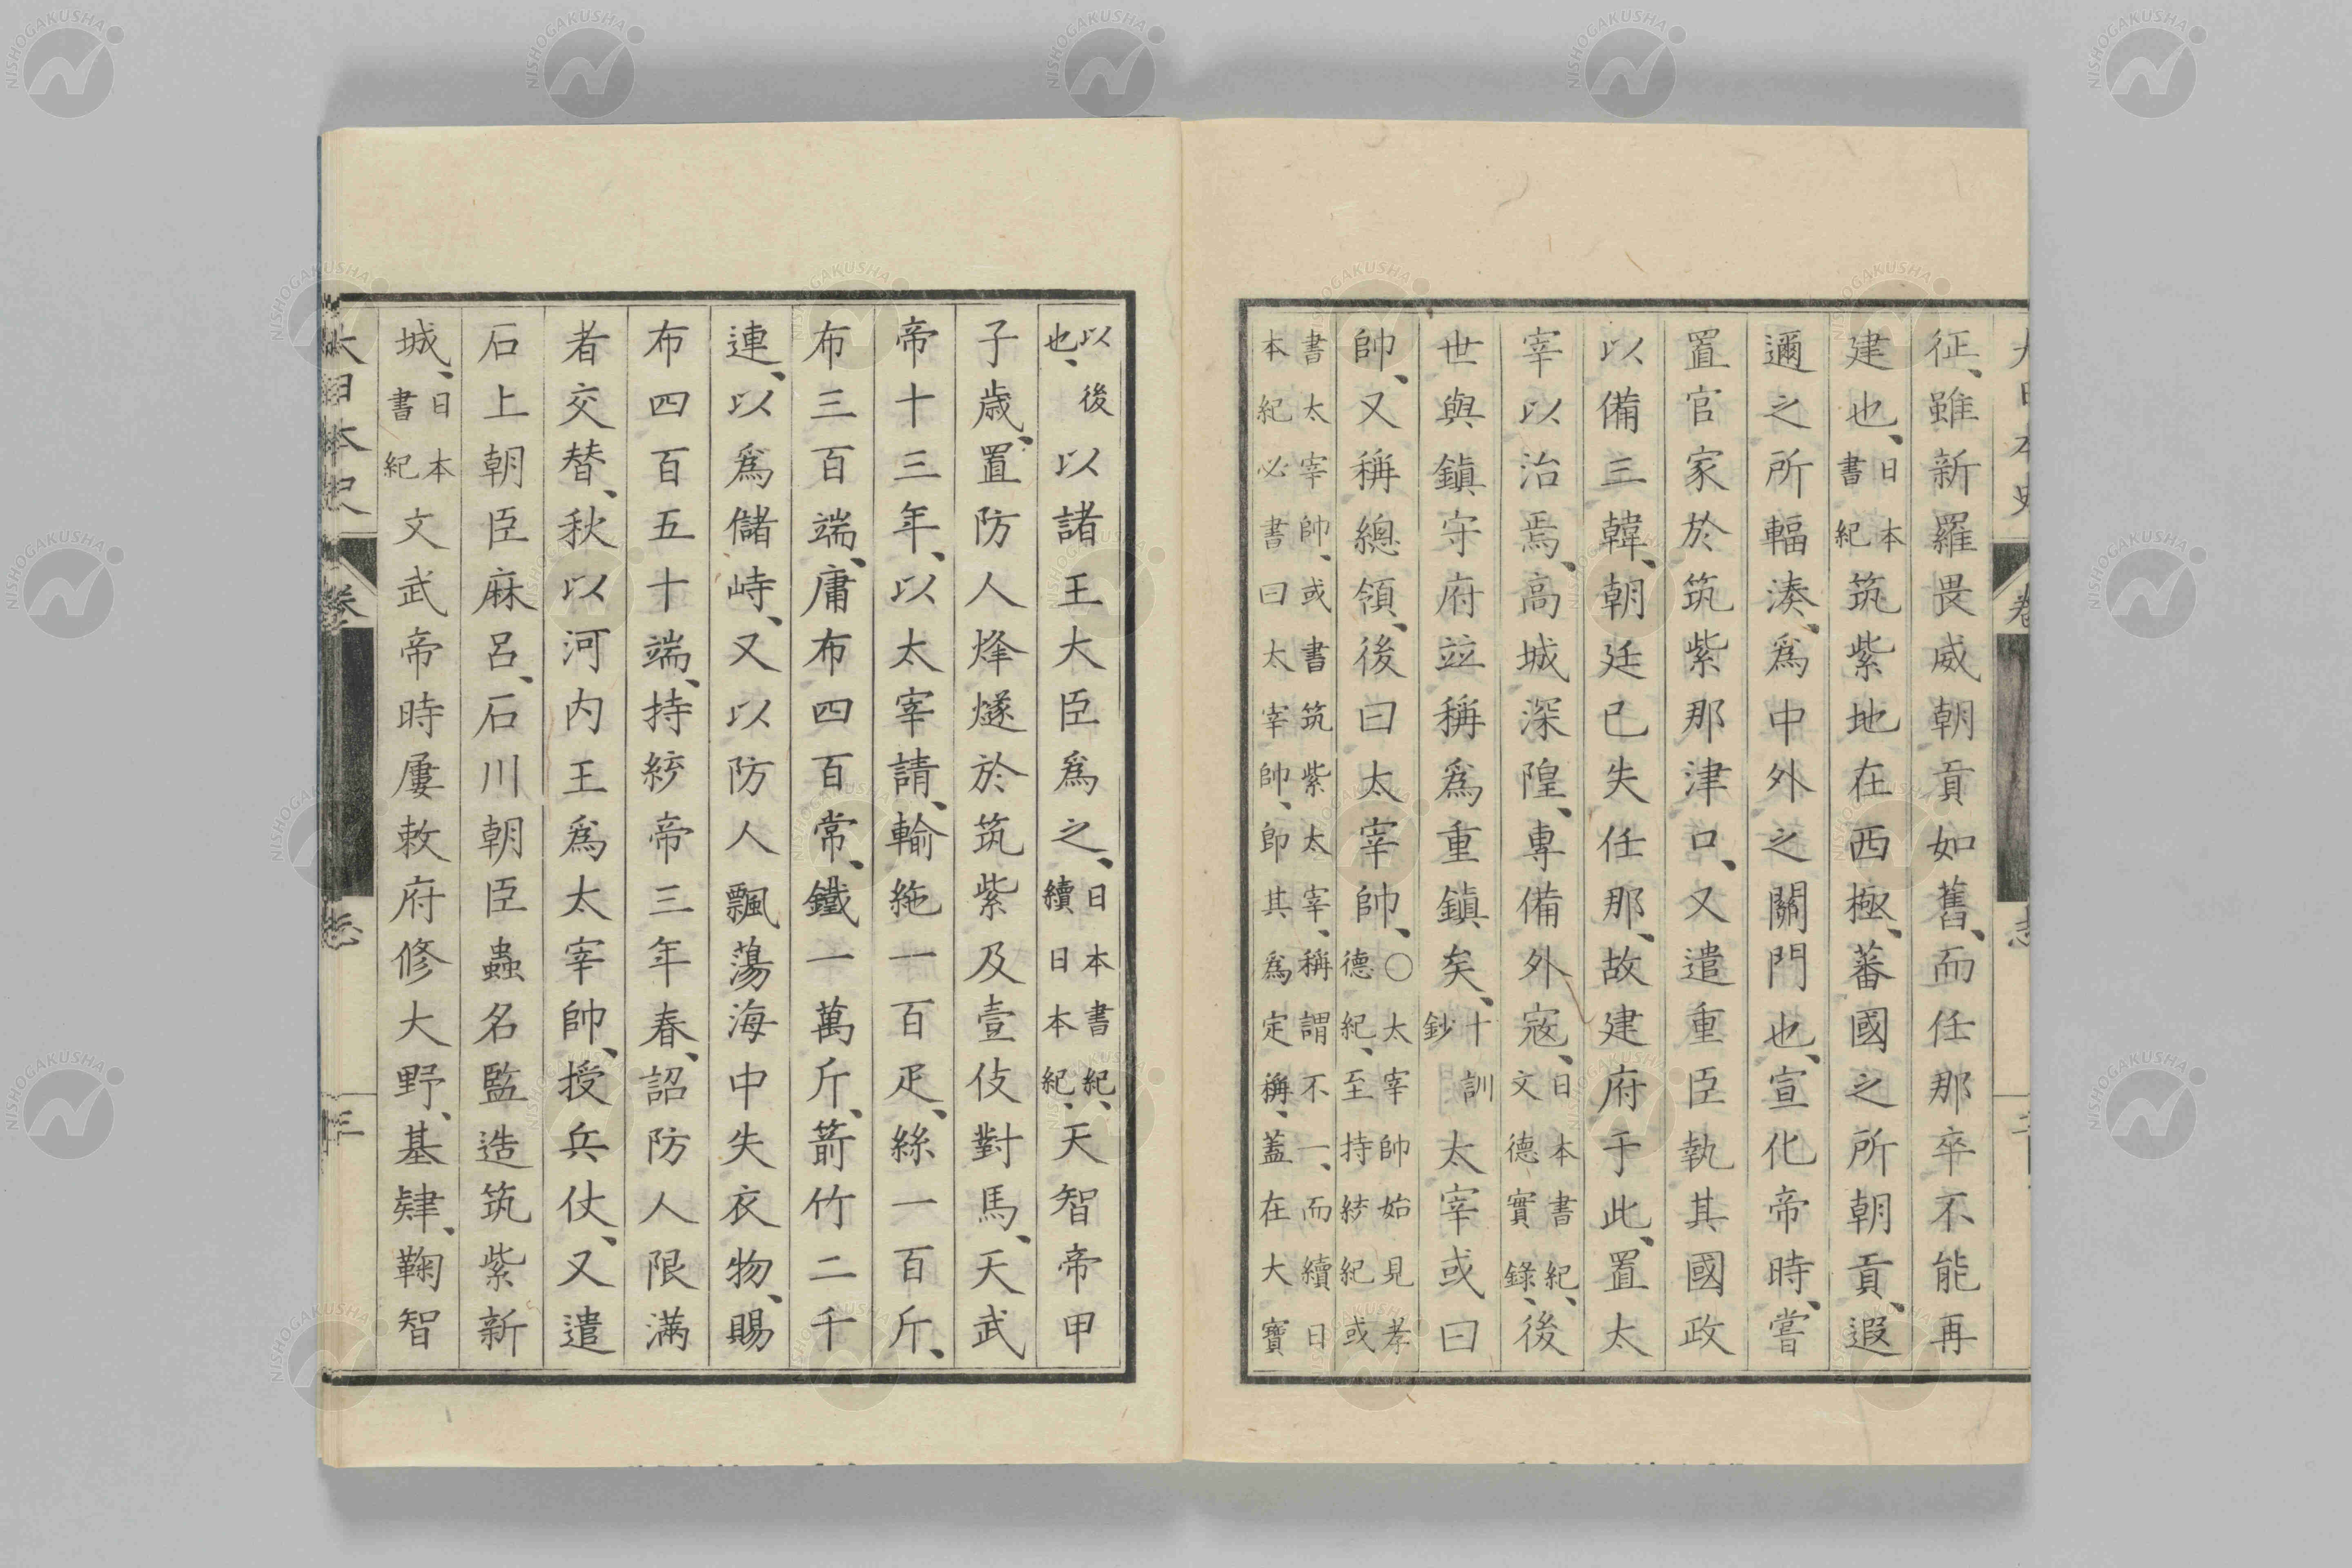 征、雖新羅畏威朝貢如舊、而任那卒不能再
建也、日本書紀筑紫地在西極、蕃國之所朝貢、遐
邇之所輻湊、爲中外之關門也、宣化帝時、嘗
置官家於筑紫那津口、又遣重臣執其國政
以備三韓、朝廷已失任那、故建府于此、置太
宰以治焉、高城深隍、專備外寇、日本書紀、文德實錄、後
世與鎮守府並稱爲重鎮矣、十訓鈔太宰或曰
帥、又稱總領、後曰太宰帥、〇太宰帥始見孝德紀、至持統紀或
書太宰帥、或書筑紫太宰、稱謂不一、而續日
本紀必書曰太宰帥、卽其爲定稱、蓋在大寶
以後也、以諸王大臣爲之、日本書紀、續日本紀、天智帝甲
子歳、置防人烽燧於筑紫及壹伎對馬、天武
帝十三年、以太宰請、輸絁一百疋、絲一百斤、
布三百端、庸布四百常、鐵一萬斤、箭竹二千
連、以爲儲峙、又以防人飄蕩海中失衣物、賜
布四百五十端、持統帝三年春、詔防人限滿
者交替、秋以河内王爲太宰帥、授兵仗、又遣
石上朝臣麻呂、石川朝臣蟲名監造筑紫新
城、日本書紀文武帝時屢敕府修大野、基肄、鞠智
大日本史 卷 志 三
NISHOGAKUSHA